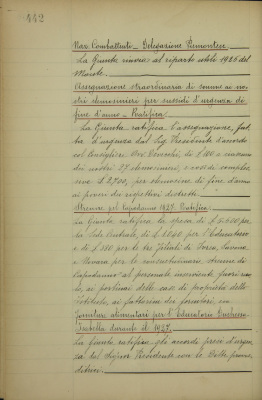 112
Naz. Combattenti - Delegazione Piemontese
La Giunta rinvia al riparto utili 1926 del
Monte.
Assegnazione straordinaria di somme ai no-
stri elemosinieri per sussidi d'urgenza di
fine d'anno - Ratifica:
La Giunta ratifica l'assegnazione, fat-
ta d'urgenza dal Sig. Presidente d'accordo
col Consigliere Avv. di £ 100 a ciascuno
dei nostri 27 elemosinieri, e così di comples-
sive £ 2,700, per elemosine di fine d'anno
ai poveri dei rispettivi distretti.
Strenne pel Capodanno 1927. Ratifica:
La Giunta ratifica la spesa di £ per
la Sede Centrale, di £ 1.040 per l'Educatorio
e di £ 180 per le tre Filiali di Torino, Savona
e Novara per le consuetudinarie strenne di
Capodanno al personale inserviente fuori ruo-
lo, ai portinai delle case di proprietà dello
Istituto, ai fattorini dei fornitori, ecc.
Forniture alimentari per l'Educatorio Duchessa
Isabella durante il 1927.
La Giunta ratifica gli accordi presi d'urgen-
za dal Signor Presidente con le Ditte